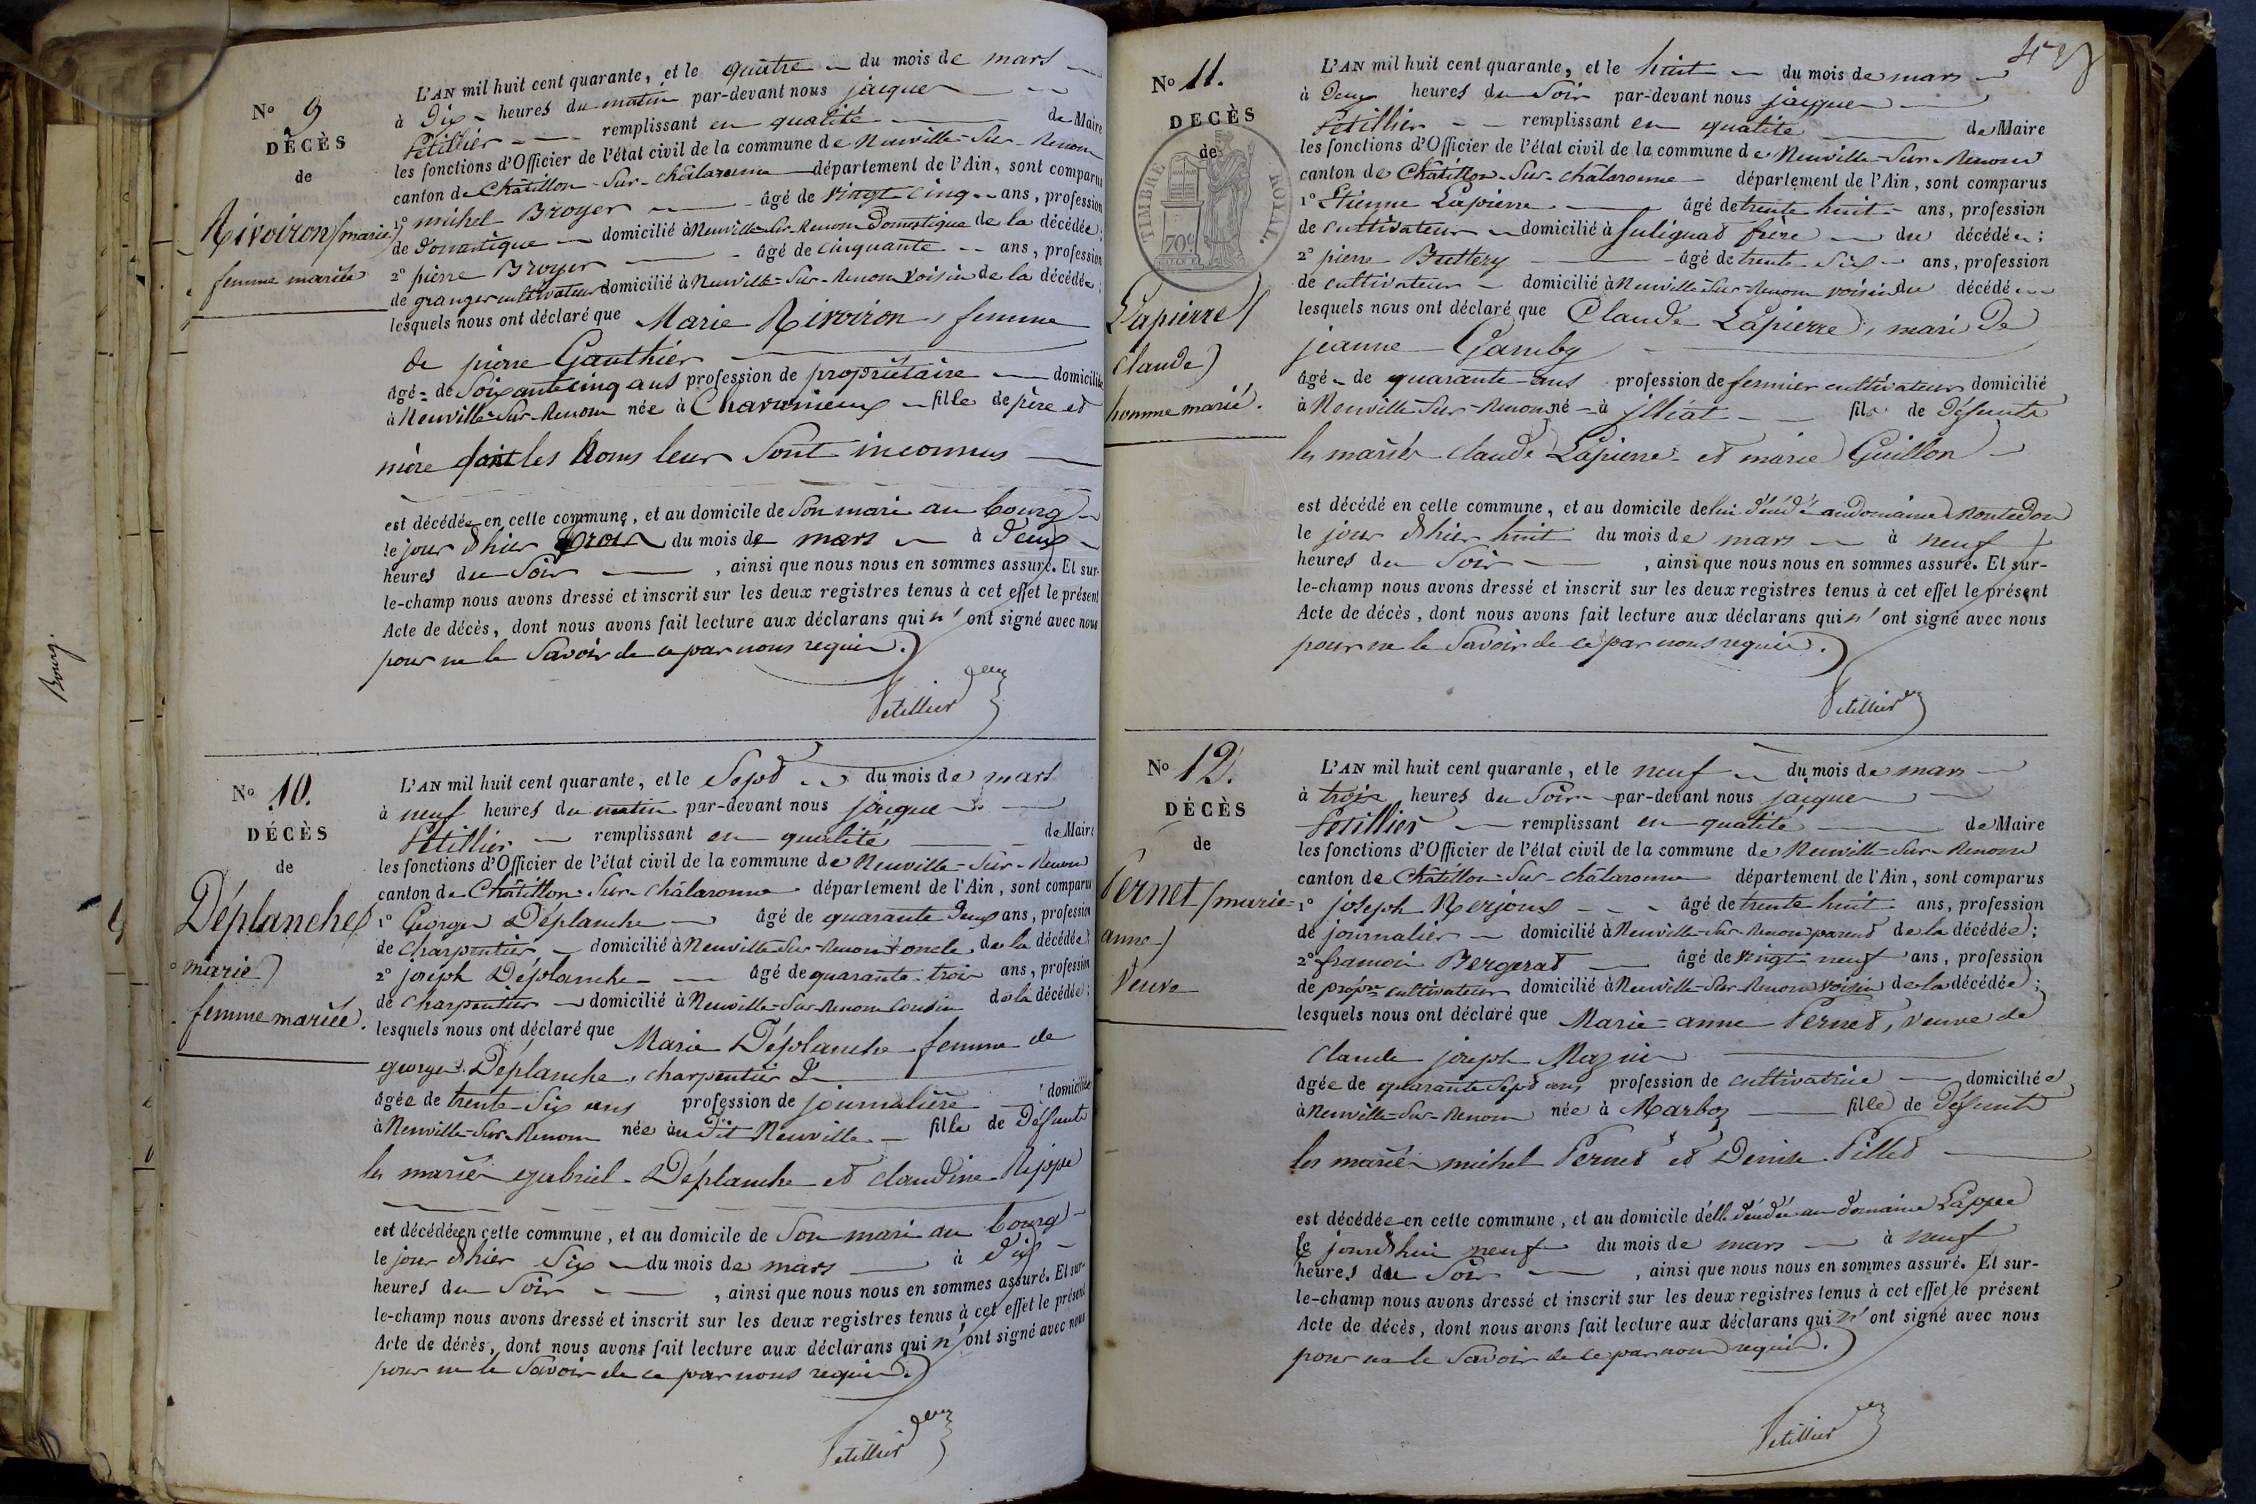 Bourg.
No 9
DÉCÈS
de
Rivoiron (marie)
femme mariée
L'AN mil huit cent quarante, et le quatre du mois de mars
à Dix heures du matin par-devant nous jacques
Petillier remplissant en qualité de Maire
les fonctions d'Officier de l'état civil de la commune de Neuville-Sur-Renom
canton de Châtillon-Sur-châlaronne département de l'Ain, sont comparus
1° michel Broyer âgé de vingt cinq ans, profession
de Domestique domicilié à Neuville-Sur-Renom Domestique de la décédée;
2° pierre Broyer âgé de cinquante ans, profession
de granger cultivateur domicilié à Neuville-Sur-Renom voisin de la décédée;
lesquels nous ont déclaré que Marie Rivoiron, femme
de pierre Gauthier
âgé de Soixante cinq ans profession de propriétaire domicilié
à Neuville-Sur-Renom née à Chavanieux fille de père et
mère dont les noms leur Sont inconnus
est décédée en cette commune, et au domicile de Son mari au bourg
le jour d'hier trois du mois de mars à Deux
heures du Soir, ainsi que nous nous en sommes assuré. Et sur-
le-champ nous avons dressé et inscrit sur les deux registres tenus à cet effet le présent
Acte de décès, dont nous avons fait lecture aux déclarans qui n'ont signé avec nous
pour ne le Savoir de ce par nous requis.
Petillier
No 10.
DÉCÈS
de
Déplanche
marie)
femme mariée.
L'AN mil huit cent quarante, et le Sept du mois de mars
à neuf heures du matin par-devant nous jacques
Petillier remplissant en qualité de Maire
les fonctions d'Officier de l'état civil de la commune de Neuville-Sur-Renom
canton de Châtillon-Sur-châlaronne département de l'Ain, sont comparus
1° Georges Déplanche âgé de quarante Deux ans, profession
de charpentier domicilié à Neuville-Sur-Renom oncle de la décédée;
2° joseph Déplanche âgé de quarante trois ans, profession
de charpentier domicilié à Neuville-Sur-Renom cousin de la décédée;
lesquels nous ont déclaré que Marie Déplanche femme de
george Déplanche, charpentier
âgée de trente-Six ans profession de journalière domiciliée
à Neuville-Sur-Renom née audit Neuville fille de Défunts
les mariés gabriel Déplanche et claudine Rippe
est décédée en cette commune, et au domicile de Son mari au bourg
le jour d'hier Six du mois de mars à Dix
heures du Soir, ainsi que nous nous en sommes assuré. Et sur-
le-champ nous avons dressé et inscrit sur les deux registres tenus à cet effet le présent
Acte de décès, dont nous avons fait lecture aux déclarans qui n'ont signé avec nous
pour ne le Savoir de ce par nous requis.
Petillier
No 11.
DECÈS
de
TIMBRE ROYAL.
70c
Lapierre (
claude)
homme marié.
L'AN mil huit cent quarante, et le huit du mois de mars
à Deux heures du Soir par-devant nous jacques
Petillier remplissant en qualité de Maire
les fonctions d'Officier de l'état civil de la commune de Neuville-Sur-Renom
canton de Châtillon-Sur-châlaronne département de l'Ain, sont comparus
1° Etienne Lapierre âgé de trente huit ans, profession
de cultivateur domicilié à Sulignat frère du décédé;
2° pierre Buttery âgé de trente Six ans, profession
de cultivateur domicilié à Neuville-Sur-Renom voisin du décédé
lesquels nous ont déclaré que Claude Lapierre, mari De
jeanne Gamby
âgé de quarante ans profession de fermier cultivateur domicilié
à Neuville-Sur-Renom né à illiat fils de Défunts
les mariés claude Lapierre et marie Guillon
est décédé en cette commune, et au domicile de lui décédé au domaine Montedon
le jour d'hier huit du mois de mars à neuf
heures du Soir, ainsi que nous nous en sommes assuré. Et sur-
le-champ nous avons dressé et inscrit sur les deux registres tenus à cet effet le présent
Acte de décès, dont nous avons fait lecture aux déclarans qui n'ont signé avec nous
pour ne le Savoir de ce par nous requis.
Petillier
No 12.
DÉCÈS
de
Pernet (marie-
anne)
Veuve
L'AN mil huit cent quarante, et le neuf du mois de mars
à trois heures du Soir par-devant nous jacques
Petillier remplissant en qualité de Maire
les fonctions d'Officier de l'état civil de la commune de Neuville-Sur-Renom
canton de Châtillon-Sur-châlaronne département de l'Ain, sont comparus
1° joseph Merjoux âgé de trente huit ans, profession
de journalier domicilié à Neuville-Sur-Renom parent de la décédée;
2° francois Bergerat âgé de vingt neuf ans, profession
de propre cultivateur domicilié à Neuville-Sur-Renom voisin de la décédée;
lesquels nous ont déclaré que Marie-anne Pernet, veuve de
Claude joseph Maznir
âgée de quarante Sept ans profession de cultivatrice domiciliée
à Neuville-Sur-Renom née à Marboz fille de Défunts
les mariés michel Pernet et Denise Pillet
est décédée en cette commune, et au domicile d'elle décédée au domaine Lappe
le jourd'hui neuf du mois de mars à neuf
heures du Soir, ainsi que nous nous en sommes assuré. Et sur-
le-champ nous avons dressé et inscrit sur les deux registres tenus à cet effet le présent
Acte de décès, dont nous avons fait lecture aux déclarans qui n'ont signé avec nous
pour ne le Savoir de ce par nous requis.
Petillier